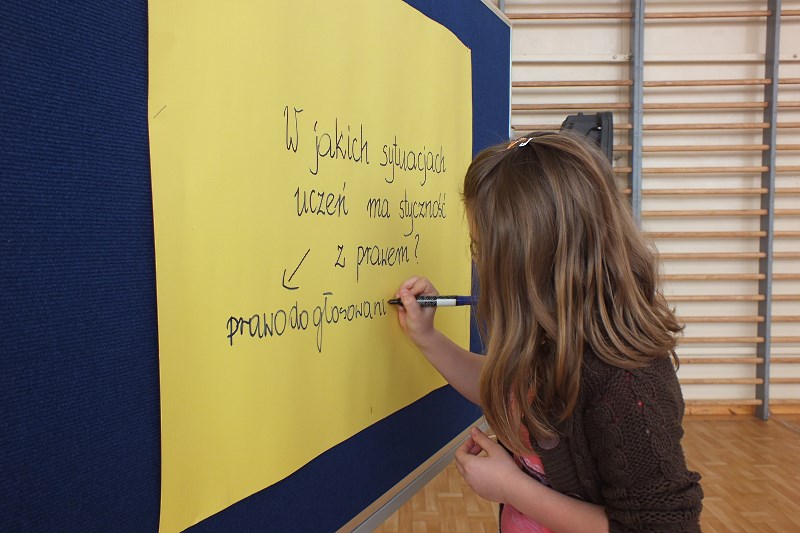 W jakich sytuacjach
uczeń ma styczność
z prawem?
prawo do głosowani